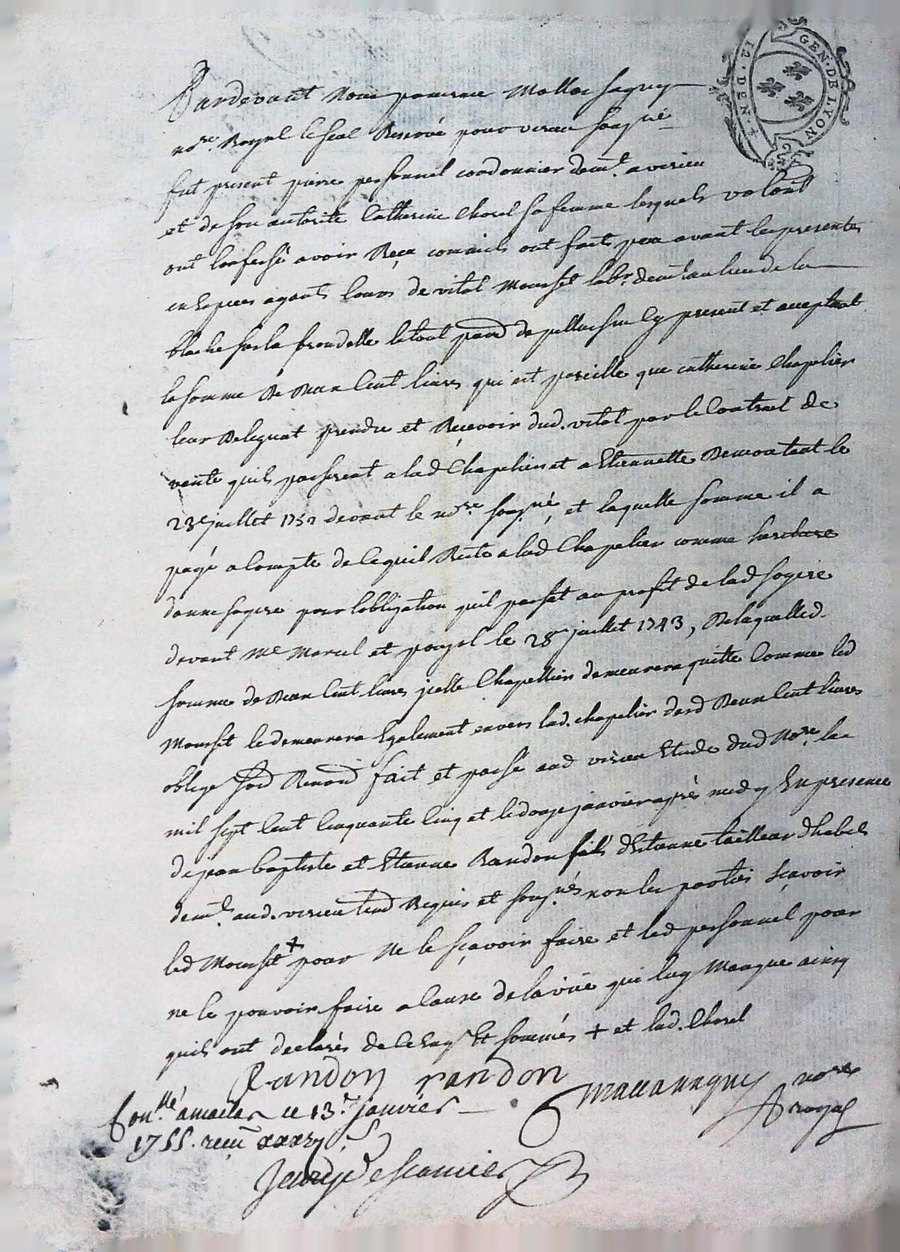 GEN. DE LYON
12. DEN
Pardevant Nous
no.re Royal le seal Renové pour virieu sousig.né
fut present pierre personnel cordonnier dem.t a virieu
et de son autorité Catherine Chorel sa femme lesquels
ont Confessé avoir Reçu comm'ils ont fait peu avant les presentes
en Especes agents Cours de vital Mourset lab.r dem.t au lieu de la
blache sur la le tout par.se de pellussin Cy present et acceptant
la somme De Deux Cent livres qui est pareille que catherine Chapelier
leur Delegua a prendre et Recevoir dud. vital par le Contract de
vente quils passerent a lad Chapelier et a Etiennette le
23e juillet 175 devant le no.re sousig.né, et laquelle somme il a
payé a Compte de Ce quil Reste a lad Chapelier comme
danne sogere pour lobligation quil passat au profit de lad sogere
devant Me Marcel et poujol le 28e juillet 1743, De laquelle d.
somme de Deux Cent livres jcelle Chapellier demeurera quitte Comme led
Mourset le demeurera Egalement envers lad. chapelier desd Deux Cent livres
oblige Soud Renoncé fait et passé aud virieu Etude dud No.re lan
mil sept Cent Cinquante Cinq et le douze janvier après midy En presence
de jean baptiste et Etienne Randon fils dEtienne tailleur dhabits
dem.t aud. virieu tem.d Requis et sousig.nés non les parties sçavoir
led Mourset + pour Ne le sçavoir faire et led personnel pour
ne le pouvoir faire a Cause de la vüe qui luy Manque ainsy
quils ont declarés de Ce Enq.s Et sommés + et lad. Chorel
Randon randon
no.re
royal
Con.llé a ce 13.e janvier
1755. reçu